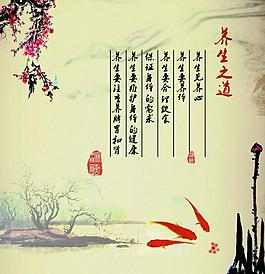 养生之道
养生先养心
养生要养体
养生要合理饮食
保证身体的需求
养生要维护身体的健康
养生要注意养脾胃和肾